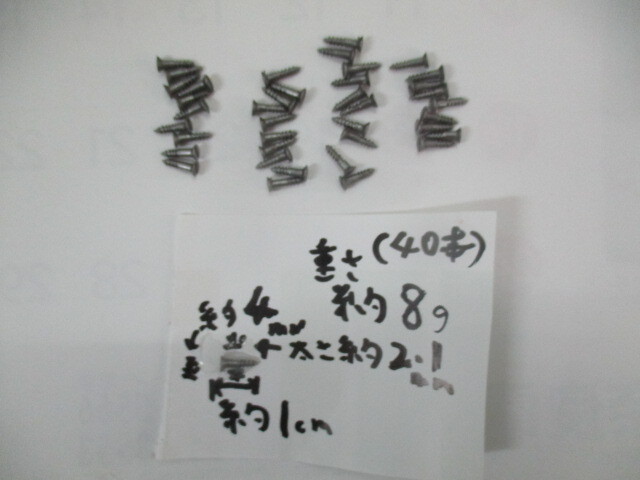 (40本)
重さ
約8g
約4mm
太さ約2.1mm
約1cm